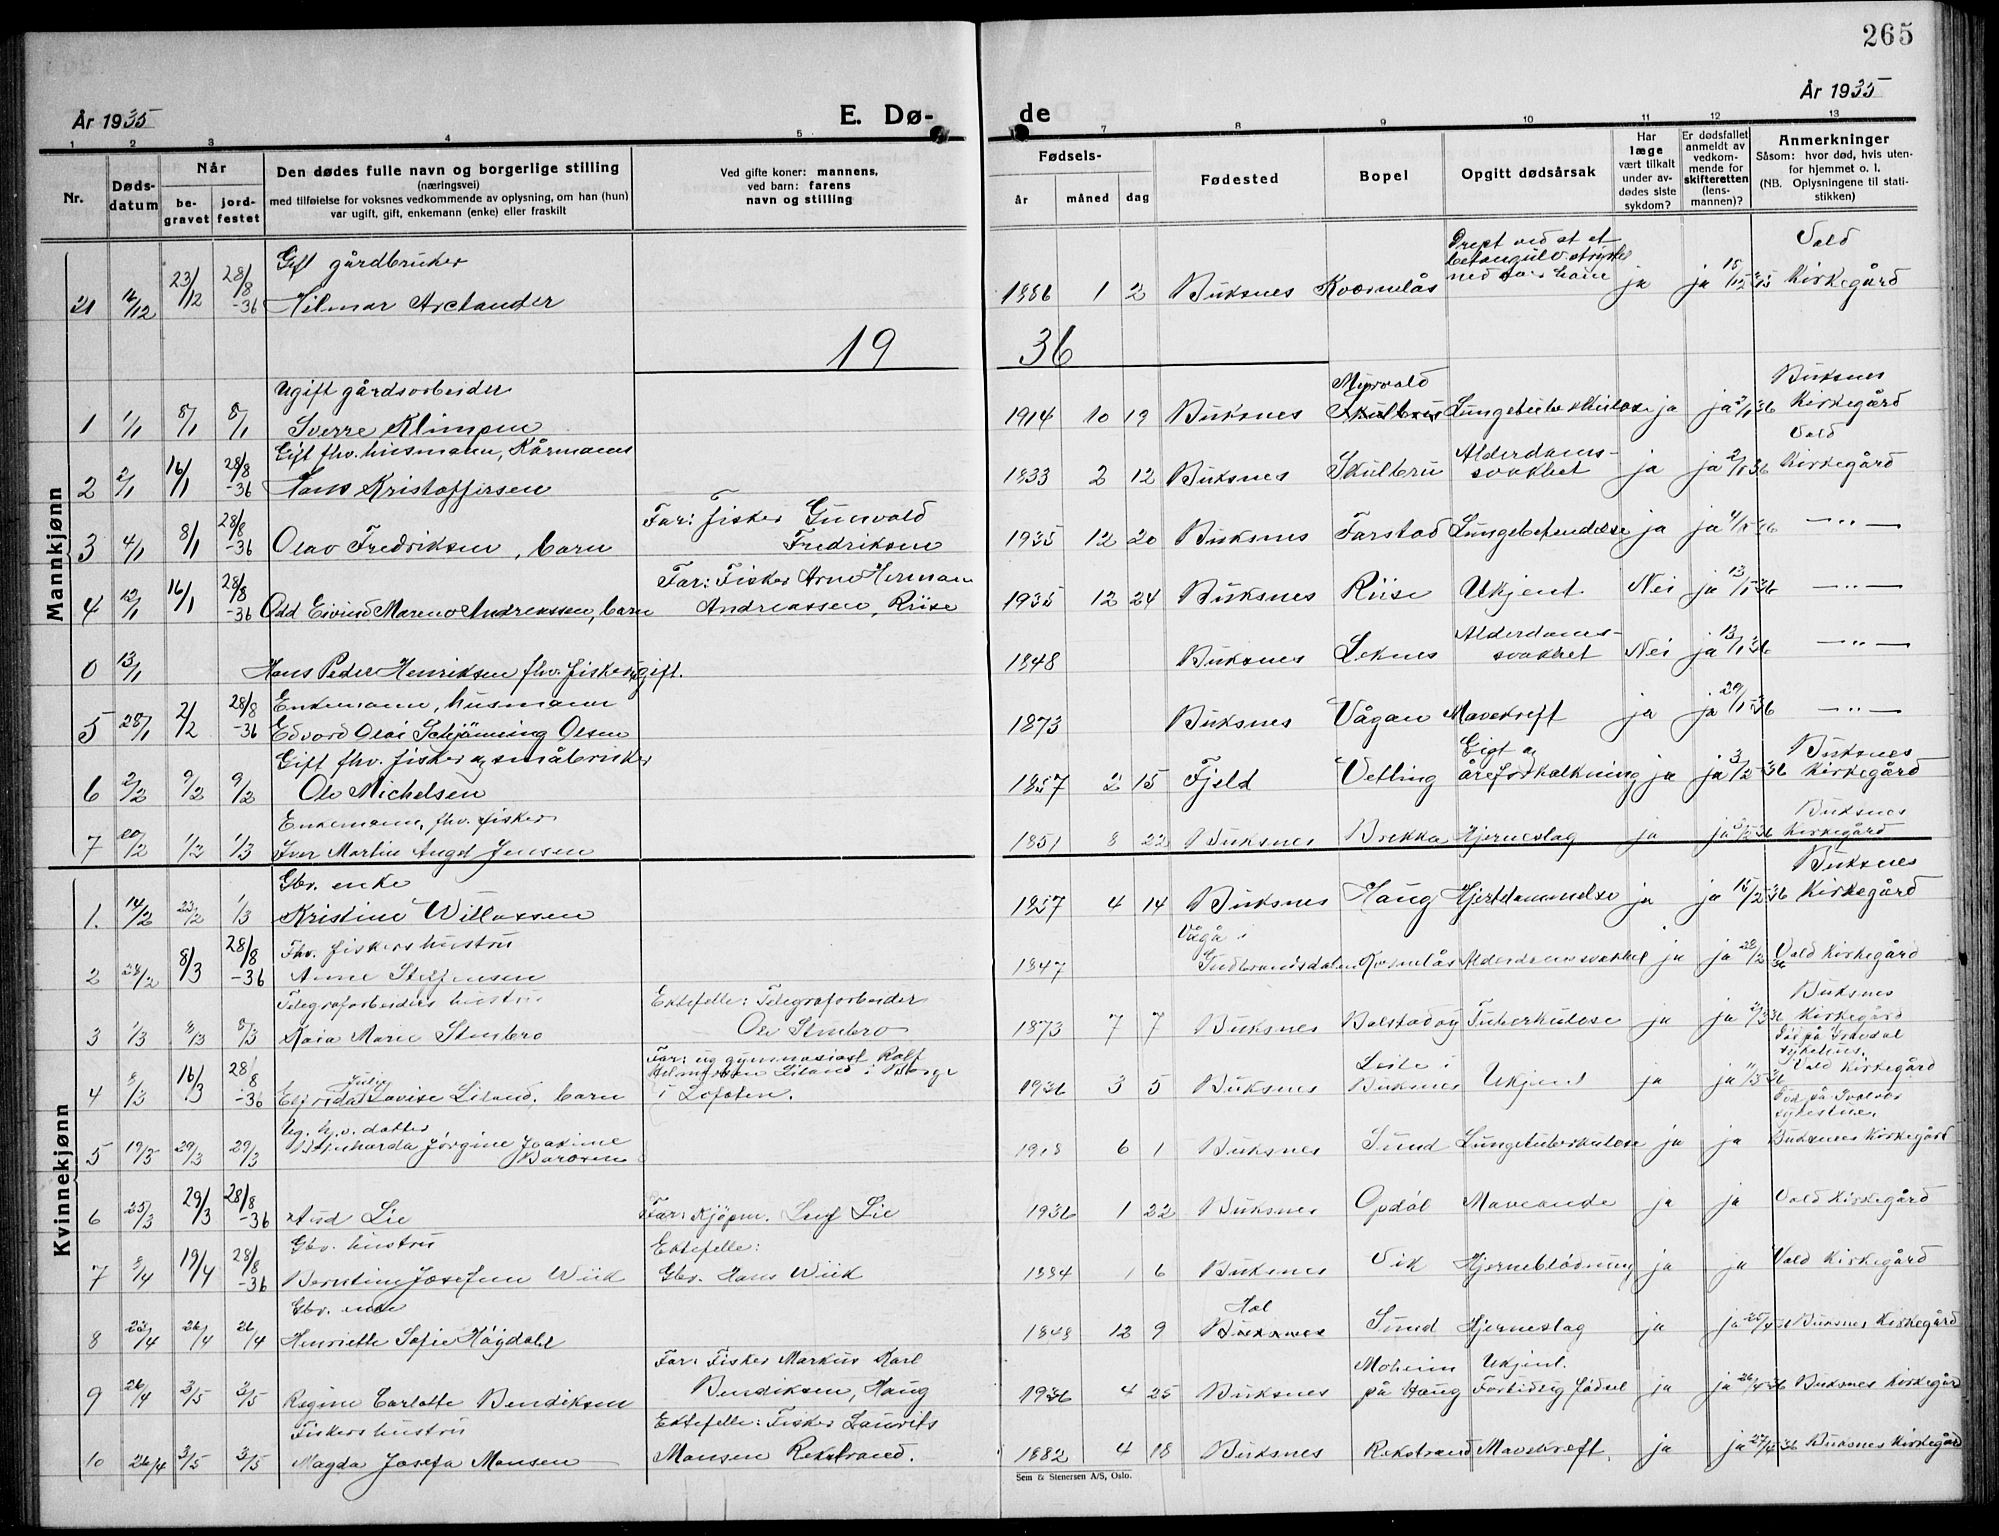 265
År 1935
E. Dø-
de
År 1935
1 2 3 4 5 7 8 9 10 11 12 13
Nr.
Døds-
datum
Når
be-
gravet
jord-
festet
Den dødes fulle navn og borgerlige stilling
(næringsvei)
med tilføielse for voksnes vedkommende av oplysning, om han (hun)
var ugift, gift, enkemann (enke) eller fraskilt
Ved gifte koner: mannens,
ved barn: farens
navn og stilling
Fødsels-
år måned dag
Fødested
Bopel
Opgitt dødsårsak
Har
læge
vært tilkalt
under av-
dødes siste
sykdom?
Er dødsfallet
anmeldt av
vedkom-
mende for
skifteretten
(lens-
mannen)?
Anmerkninger
Såsom: hvor død, hvis uten-
for hjemmet o. l.
(NB. Oplysningene til stati-
stikken)
Mannkjønn
Gift gårdbruker
21 12/12 23/12 28/8 -36 Hilmar Arctander 1886 1 2 Buksnes Kværnelås ja ja 18/12 35 Vold Kirkegård
19 36
Ugift gårdsarbeider
1 1/1 8/1 8/1 Sverre Klimpen 1914 10 19 Buksnes Myrvold Lungetuberkulose ja ja 36 Buksnes Kirkegård
Gift fhv. husmann, Kårmann
2 2/1 16/1 28/8 -36 Hans Kristoffersen 1833 2 12 Buksnes Skulbru Alderdoms-svakhet ja ja 2/1 36 Vold Kirkegård
3 4/1 8/1 28/8 -36 Olav Fredriksen, barn Far: fisker Gunvald Fredriksen 1935 12 20 Buksnes Farstad Lungebetendelse ja ja 4/1 36 — " —
4 12/1 16/1 28/8 -36 Odd Eivind Mareno Andreassen, barn Far: Fisker Arne Herman Andreassen, Riise 1935 12 24 Buksnes Riise Ukjent. Nei ja 13/1 36 — " —
0 13/1 Hans Peder Henriksen fhv. fisker, gift. 1848 Buksnes Leknes Alderdoms-svakhet Nei ja 13/1 36 — " —
Enkemann, husmann
5 28/1 2/2 28/8 -36 Edvard Olai Schjønning Olsen 1873 Buksnes Vågan Mavekreft ja ja 29/1 36 — " —
Gift fhv. fisker og småbruker
6 2/2 9/2 9/2 Ole Michelsen 1857 2 15 Fjeld Vetting Gigt og åreforkalkning ja ja 3/2 36 Buksnes Kirkegård
Enkemann, fhv. fisker
7 20/2 1/3 1/3 Iver Martin Angel Jensen 1851 8 22 Buksnes Brekka Hjerneslag ja ja 36 Buksnes Kirkegård
Kvinnekjønn
Gbr. enke
1. 14/2 23/2 1/3 Kristine Willassen 1857 4 14 Buksnes Haug Hjertelammelse ja ja 15/2 36 Buksnes Kirkegård
Fhv. fiskers hustru
2 28/2 8/3 28/8 -36 Anne Steffensen 1847 Vågå i Gudbrandsdalen Kvernelås Alderdomssvakhet ja ja 28/2 36 Vold Kirkegård
Telegrafarbeiders hustru
3 1/3 8/3 8/3 Kaia Marie Stenbro Ektefelle: Telegrafarbeider Ole Stenbro 1873 7 7 Buksnes Balstadøy Tuberkulose ja ja 36 Buksnes Kirkegård
4 8/3 16/3 28/8 -36 Julie Lovise Liland, barn Far: ug gymnasiast Rolf Liland i Borge i Lofoten. 1936 3 5 Buksnes Leite i Buksnes Ukjent ja ja 11/3 36 Vold Kirkegård
Ug. hj.v. datter
5 19/3 29/3 29/3 Jørgine Joakime 1918 6 1 Buksnes Sund Lungetuberkulose ja ja Buksnes Kirkegård
6 25/3 29/3 28/8 -36 Aud Lie Far: Kjøpm. Leif Lie 1936 1 22 Buksnes Opdøl ja ja Vold Kirkegård
Gbr. hustru
7 9/4 19/4 28/8 -36 Berntine Josefine Wiik Ektefelle: Gbr. Hans Wiik 1884 1 6 Buksnes Vik Hjerneblødning ja ja Vold Kirkegård
Gbr. enke
8 23/4 26/4 26/4 Henriette Sofie Høgdahl 1848 12 9 Hol Buksnes Sund Hjerneslag ja ja 25/4 Buksnes Kirkegård
9 26/4 3/5 3/5 Regine Carlotte Bendiksen Far: Fisker Markus Karl Bendiksen, Haug 1936 4 25 Buksnes Moheim på Haug Ukjent. Fortidlig fødsel ja ja 26/4 36 Buksnes Kirkegård
Fiskers hustru
10 26/4 3/5 3/5 Magda Josefa Monsen Ektefelle: Fisker Laurits Monsen Rekstrand. 1882 4 18 Buksnes Rekstrand Mavekreft. ja ja 27/4 36 Buksnes Kirkegård
Sem & Stenersen A/S, Oslo.